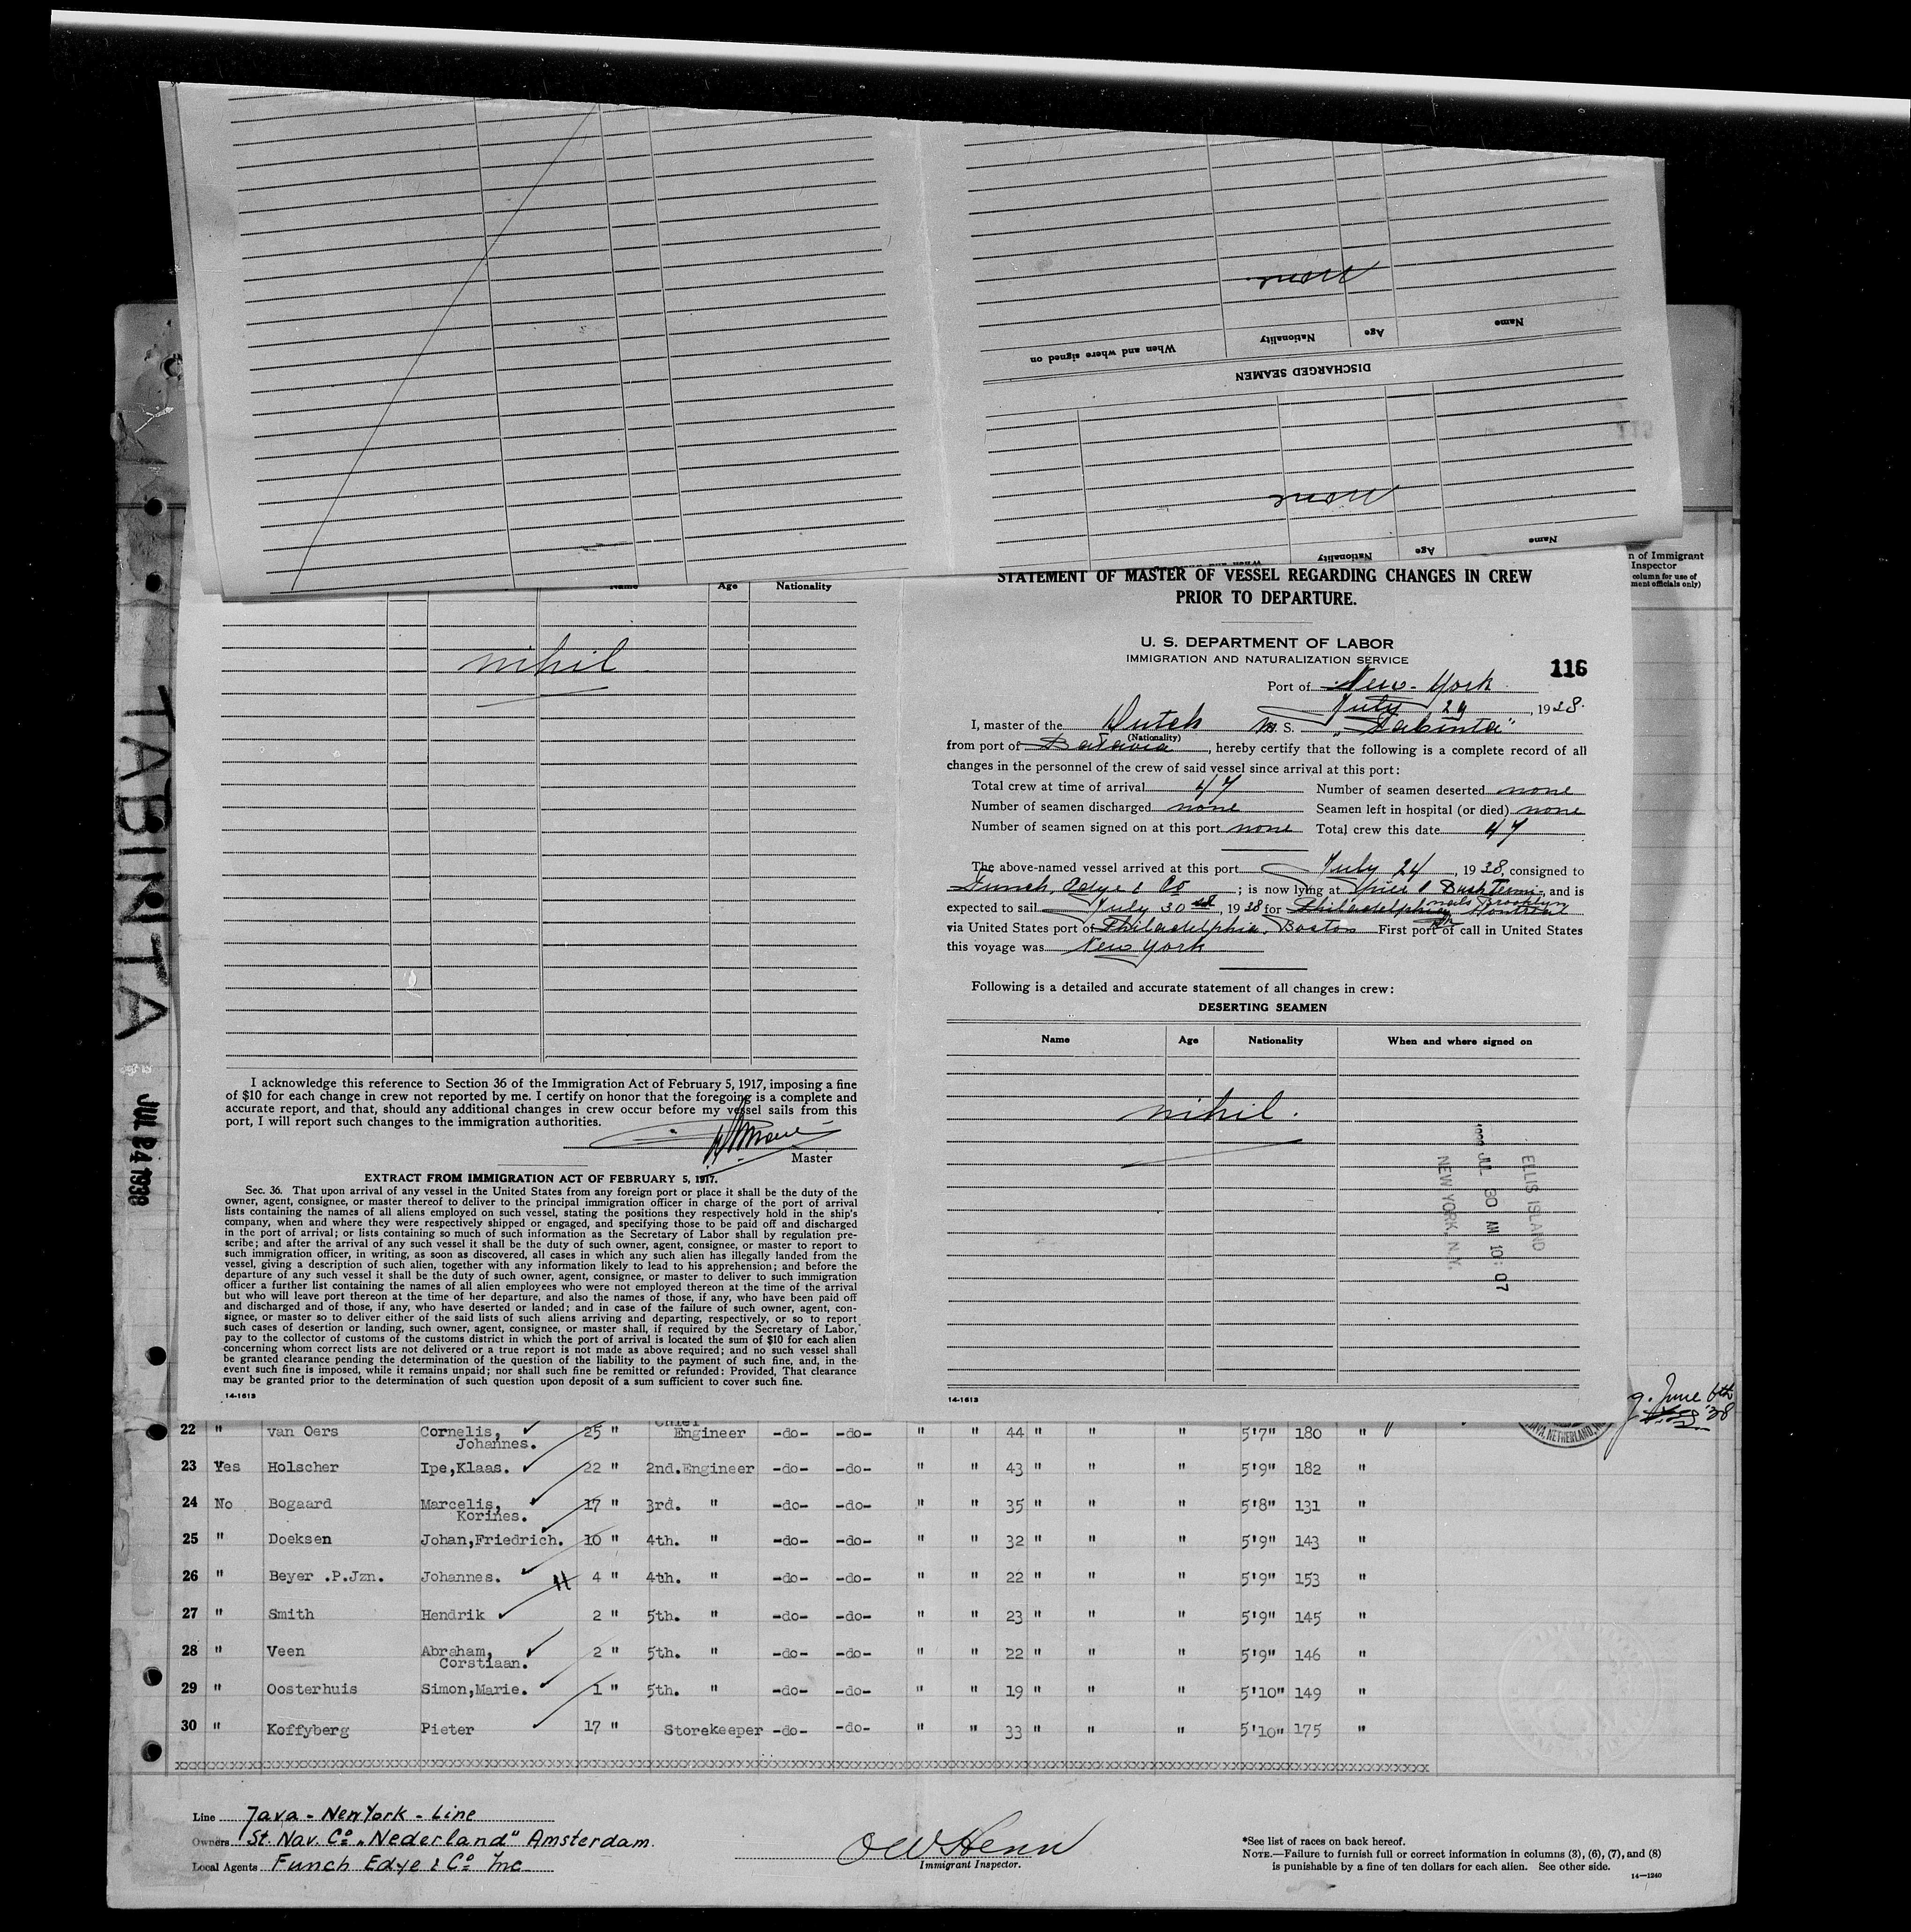 None
When and where signed on Nationality Age Name
DISCHARGED SEAMEN
None
When and where signed on Nationality Age Name
TABINTA
JUL 24 1938
n of Immigrant
Inspector
column for use of
ment officials only)
Name Age Nationality
nihil
I acknowledge this reference to Section 36 of the Immigration Act of February 5, 1917, imposing a fine
of $10 for each change in crew not reported by me. I certify on honor that the foregoing is a complete and
accurate report, and that, should any additional changes in crew occur before my vessel sails from this
port, I will report such changes to the immigration authorities.
Master
EXTRACT FROM IMMIGRATION ACT OF FEBRUARY 5, 1917.
Sec. 36. That upon arrival of any vessel in the United States from any foreign port or place it shall be the duty of the
owner, agent, consignee, or master thereof to deliver to the principal immigration officer in charge of the port of arrival
lists containing the names of all aliens employed on such vessel, stating the positions they respectively hold in the ship's
company, when and where they were respectively shipped or engaged, and specifying those to be paid off and discharged
in the port of arrival; or lists containing so much of such information as the Secretary of Labor shall by regulation pre-
scribe; and after the arrival of any such vessel it shall be the duty of such owner, agent, consignee, or master to report to
such immigration officer, in writing, as soon as discovered, all cases in which any such alien has illegally landed from the
vessel, giving a description of such alien, together with any information likely to lead to his apprehension; and before the
departure of any such vessel it shall be the duty of such owner, agent, consignee, or master to deliver to such immigration
officer a further list containing the names of all alien employees who were not employed thereon at the time of the arrival
but who will leave port thereon at the time of her departure, and also the names of those, if any, who have been paid off
and discharged and of those, if any, who have deserted or landed; and in case of the failure of such owner, agent, con-
signee, or master so to deliver either of the said lists of such aliens arriving and departing, respectively, or so to report
such cases of desertion or landing, such owner, agent, consignee, or master shall, if required by the Secretary of Labor,
pay to the collector of customs of the customs district in which the port of arrival is located the sum of $10 for each alien
concerning whom correct lists are not delivered or a true report is not made as above required; and no such vessel shall
be granted clearance pending the determination of the question of the liability to the payment of such fine, and, in the
event such fine is imposed, while it remains unpaid; nor shall such fine be remitted or refunded: Provided, That clearance
may be granted prior to the determination of such question upon deposit of a sum sufficient to cover such fine.
14-1613
STATEMENT OF MASTER OF VESSEL REGARDING CHANGES IN CREW
PRIOR TO DEPARTURE.
U. S. DEPARTMENT OF LABOR
IMMIGRATION AND NATURALIZATION SERVICE
116
Port of New-York
July 29, 1938.
I, master of the Dutch M. S. "Tabinta"
(Nationality)
from port of Batavia, hereby certify that the following is a complete record of all
changes in the personnel of the crew of said vessel since arrival at this port:
Total crew at time of arrival 47 Number of seamen deserted none
Number of seamen discharged none Seamen left in hospital (or died) none
Number of seamen signed on at this port none Total crew this date 47
The above-named vessel arrived at this port July 24, 1938, consigned to
Funch, Edye & Co; is now lying at Pier 1 Bush Termi-, and is
nals Brooklyn
expected to sail July 30, 1938 for Philadelphia Montreal
via United States port of Philadelphia, Boston First port of call in United States
this voyage was New York
Following is a detailed and accurate statement of all changes in crew:
DESERTING SEAMEN
Name Age Nationality When and where signed on
nihil.
ELLIS ISLAND
1938 JUL 30 AM 10:07
NEW YORK, N.Y.
14-1613
June 6th
'38
JAVA, NETHERLAND
22 " van Oers Cornelis, Johannes. 25 " Chief Engineer -do- -do- " " 44 " " " 5'7" 180 "
23 Yes Holscher Ipe,Klaas. 22 " 2nd.Engineer -do- -do- " " 43 " " " 5'9" 182 "
24 No Bogaard Marcelis, Korines. 17 " 3rd. " -do- -do- " " 35 " " " 5'8" 131 "
25 " Doeksen Johan,Friedrich. 10 " 4th. " -do- -do- " " 32 " " " 5'9" 143 "
26 " Beyer .P.Jzn. Johannes. 4 " 4th. " -do- -do- " " 22 " " " 5'9" 153 "
27 " Smith Hendrik 2 " 5th. " -do- -do- " " 23 " " " 5'9" 145 "
28 " Veen Abraham, Corstiaan. 2 " 5th. " -do- -do- " " 22 " " " 5'9" 146 "
29 " Oosterhuis Simon,Marie. 1 " 5th. " -do- -do- " " 19 " " " 5'10" 149 "
30 " Koffyberg Pieter 17 " Storekeeper -do- -do- " " 33 " " " 5'10" 175 "
Line Java - New York - Line
Owners St. Nav. Co. „Nederland" Amsterdam.
Local Agents Funch Edye & Co. Inc
OW Henn
Immigrant Inspector.
*See list of races on back hereof.
NOTE.—Failure to furnish full or correct information in columns (3), (6), (7), and (8)
is punishable by a fine of ten dollars for each alien. See other side.
14—1240